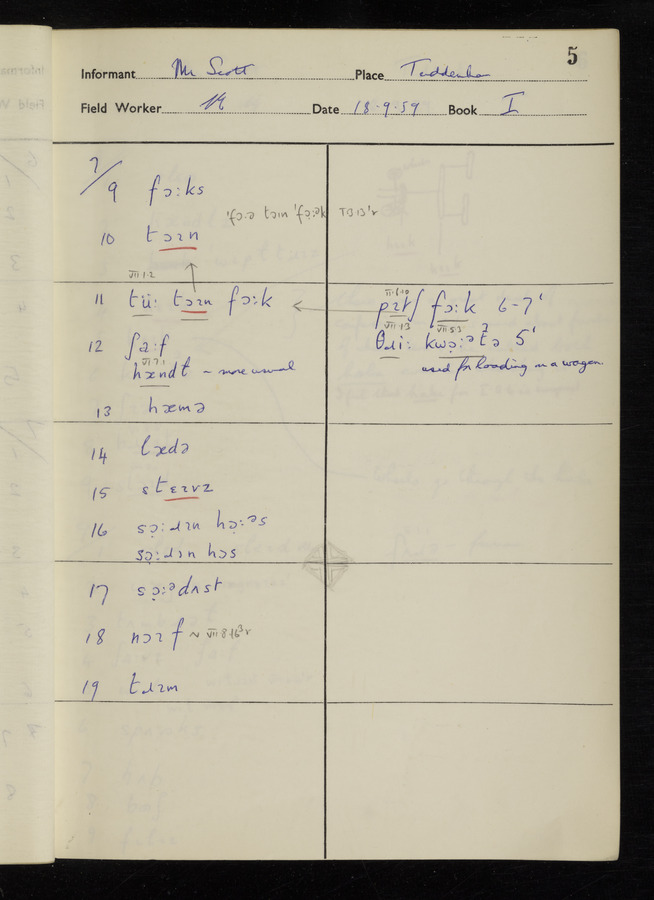 5
Informant Mr Scott Place Tuddenham
Field Worker Date 18.9.59 Book I
7/9 fɔːks
10 tɔɪn
VII 1.2
11 tüː tɔɪn fɔːk
VII.1
hændt ~ more usual
13 hæmə
14 lædə
15 stɛɪvz
16 sɔ̣ːɹɪn hɔ̣ːəs
sɔ̣ːɹɪn hɔs
17 sɔ̣ːədʌst
18 nɔɪf ~ VII 8 16
19 tɹɪm
pɪtʃ fɔːk 6-7'
VII 1.3 VII 5.3
θɹiː kwɔ̣ːəʔə 5'
used for loading on a wagon.